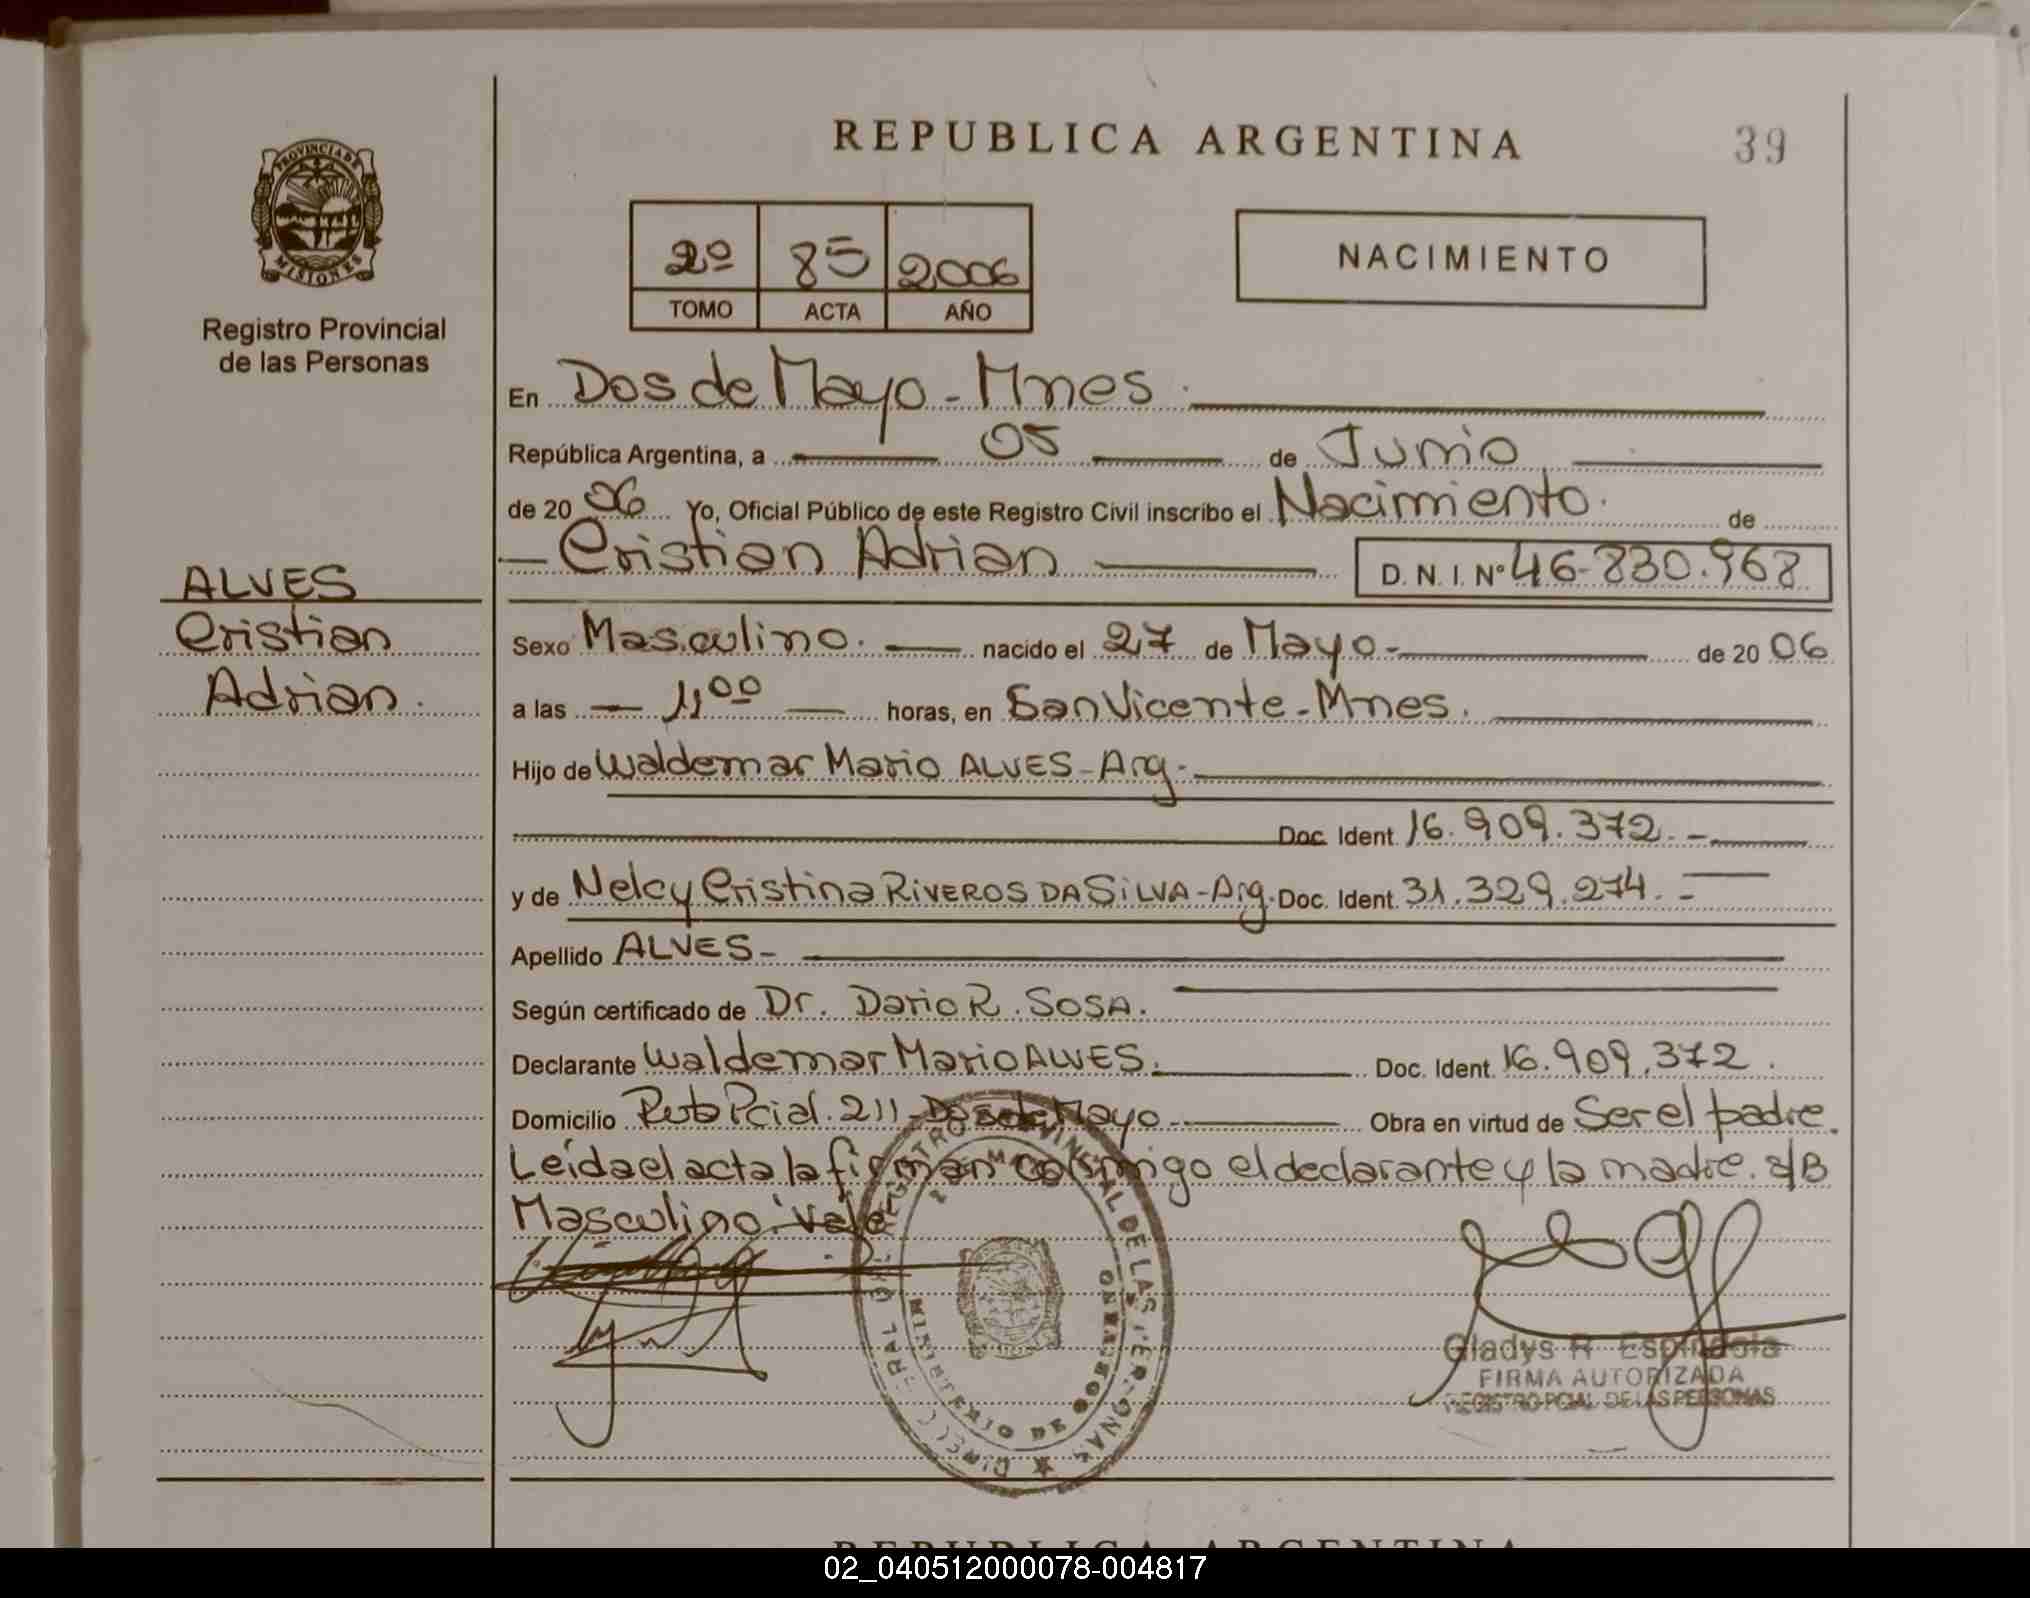 REPUBLICA ARGENTINA
39
PROVINCIA DE
MISIONES
Registro Provincial
de las Personas
2º 85 2006
TOMO ACTA AÑO
NACIMIENTO
En Dos de Mayo - Mnes.
República Argentina, a 05 de Junio
de 20 06 Yo, Oficial Público de este Registro Civil inscribo el Nacimiento. de
Cristian Adrian D. N. I. Nº 46-830.968
ALVES
Cristian
Adrian.
Sexo Masculino. nacido el 27 de Mayo - de 20 06
a las 11,00 horas, en San Vicente - Mnes.
Hijo de Waldemar Mario ALVES - Arg.
Doc. Ident. 16.909.372. -
y de Nelcy Cristina RIVEROS DA SILVA - Arg. Doc. Ident. 31.329.274. -
Apellido ALVES -
Según certificado de Dr. Dario R. SOSA.
Declarante Waldemar Mario ALVES. Doc. Ident. 16.909.372.
Domicilio Ruta Pcial. 211 - Dos de Mayo - Obra en virtud de Ser el padre.
Leída el acta la firman conmigo el declarante y la madre. s/B
Masculino: Vale
REGISTRO PROVINCIAL DE LAS PERSONAS
MINISTERIO DE GOBIERNO
Gladys R. Espindola
FIRMA AUTORIZADA
REGISTRO PCIAL. DE LAS PERSONAS
REPUBLICA ARGENTINA
02_040512000078-004817